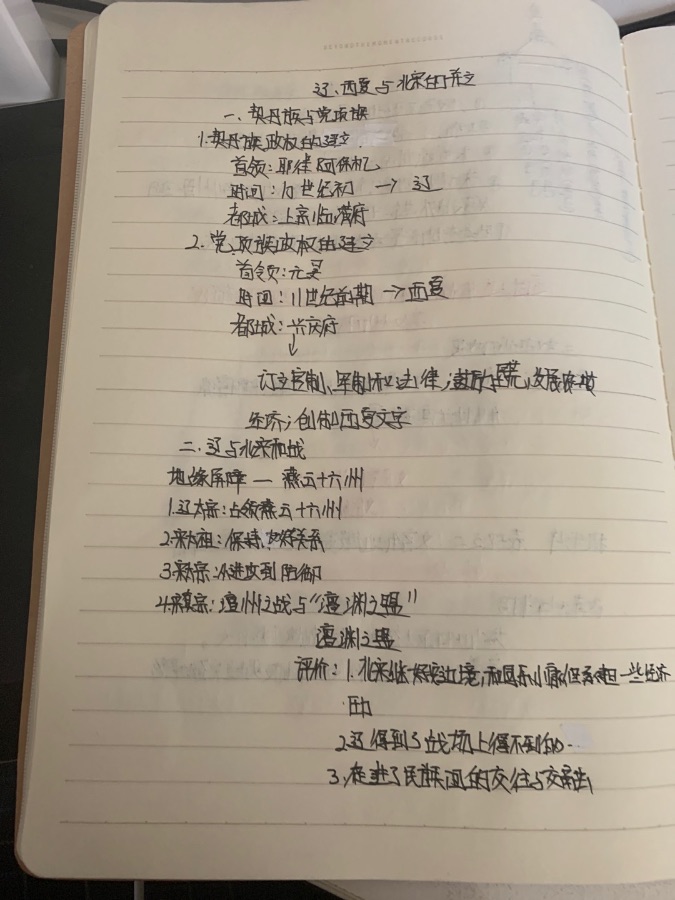 辽、西夏与北宋的并立
一、契丹族与党项族
1.契丹族政权的建立
首领：耶律阿保机
时间：10世纪初 → 辽
都城：上京临潢府
2.党项族政权的建立
首领：元昊
时间：11世纪前期 → 西夏
都城：兴庆府
↓
订立官制、军制和法律；鼓励垦荒，发展农牧
经济；创制西夏文字
二、辽与北宋和战
地缘屏障 — 燕云十六州
1.辽太宗：占领燕云十六州
2.宋太祖：保持友好关系
3.宋太宗：从进攻到防御
4.宋真宗：澶州之战与“澶渊之盟”
澶渊之盟
评价：1.北宋 边境， 但承担一些经济
压力
2.辽得到了战场上得不到的
3.促进了民族间的交往与交融